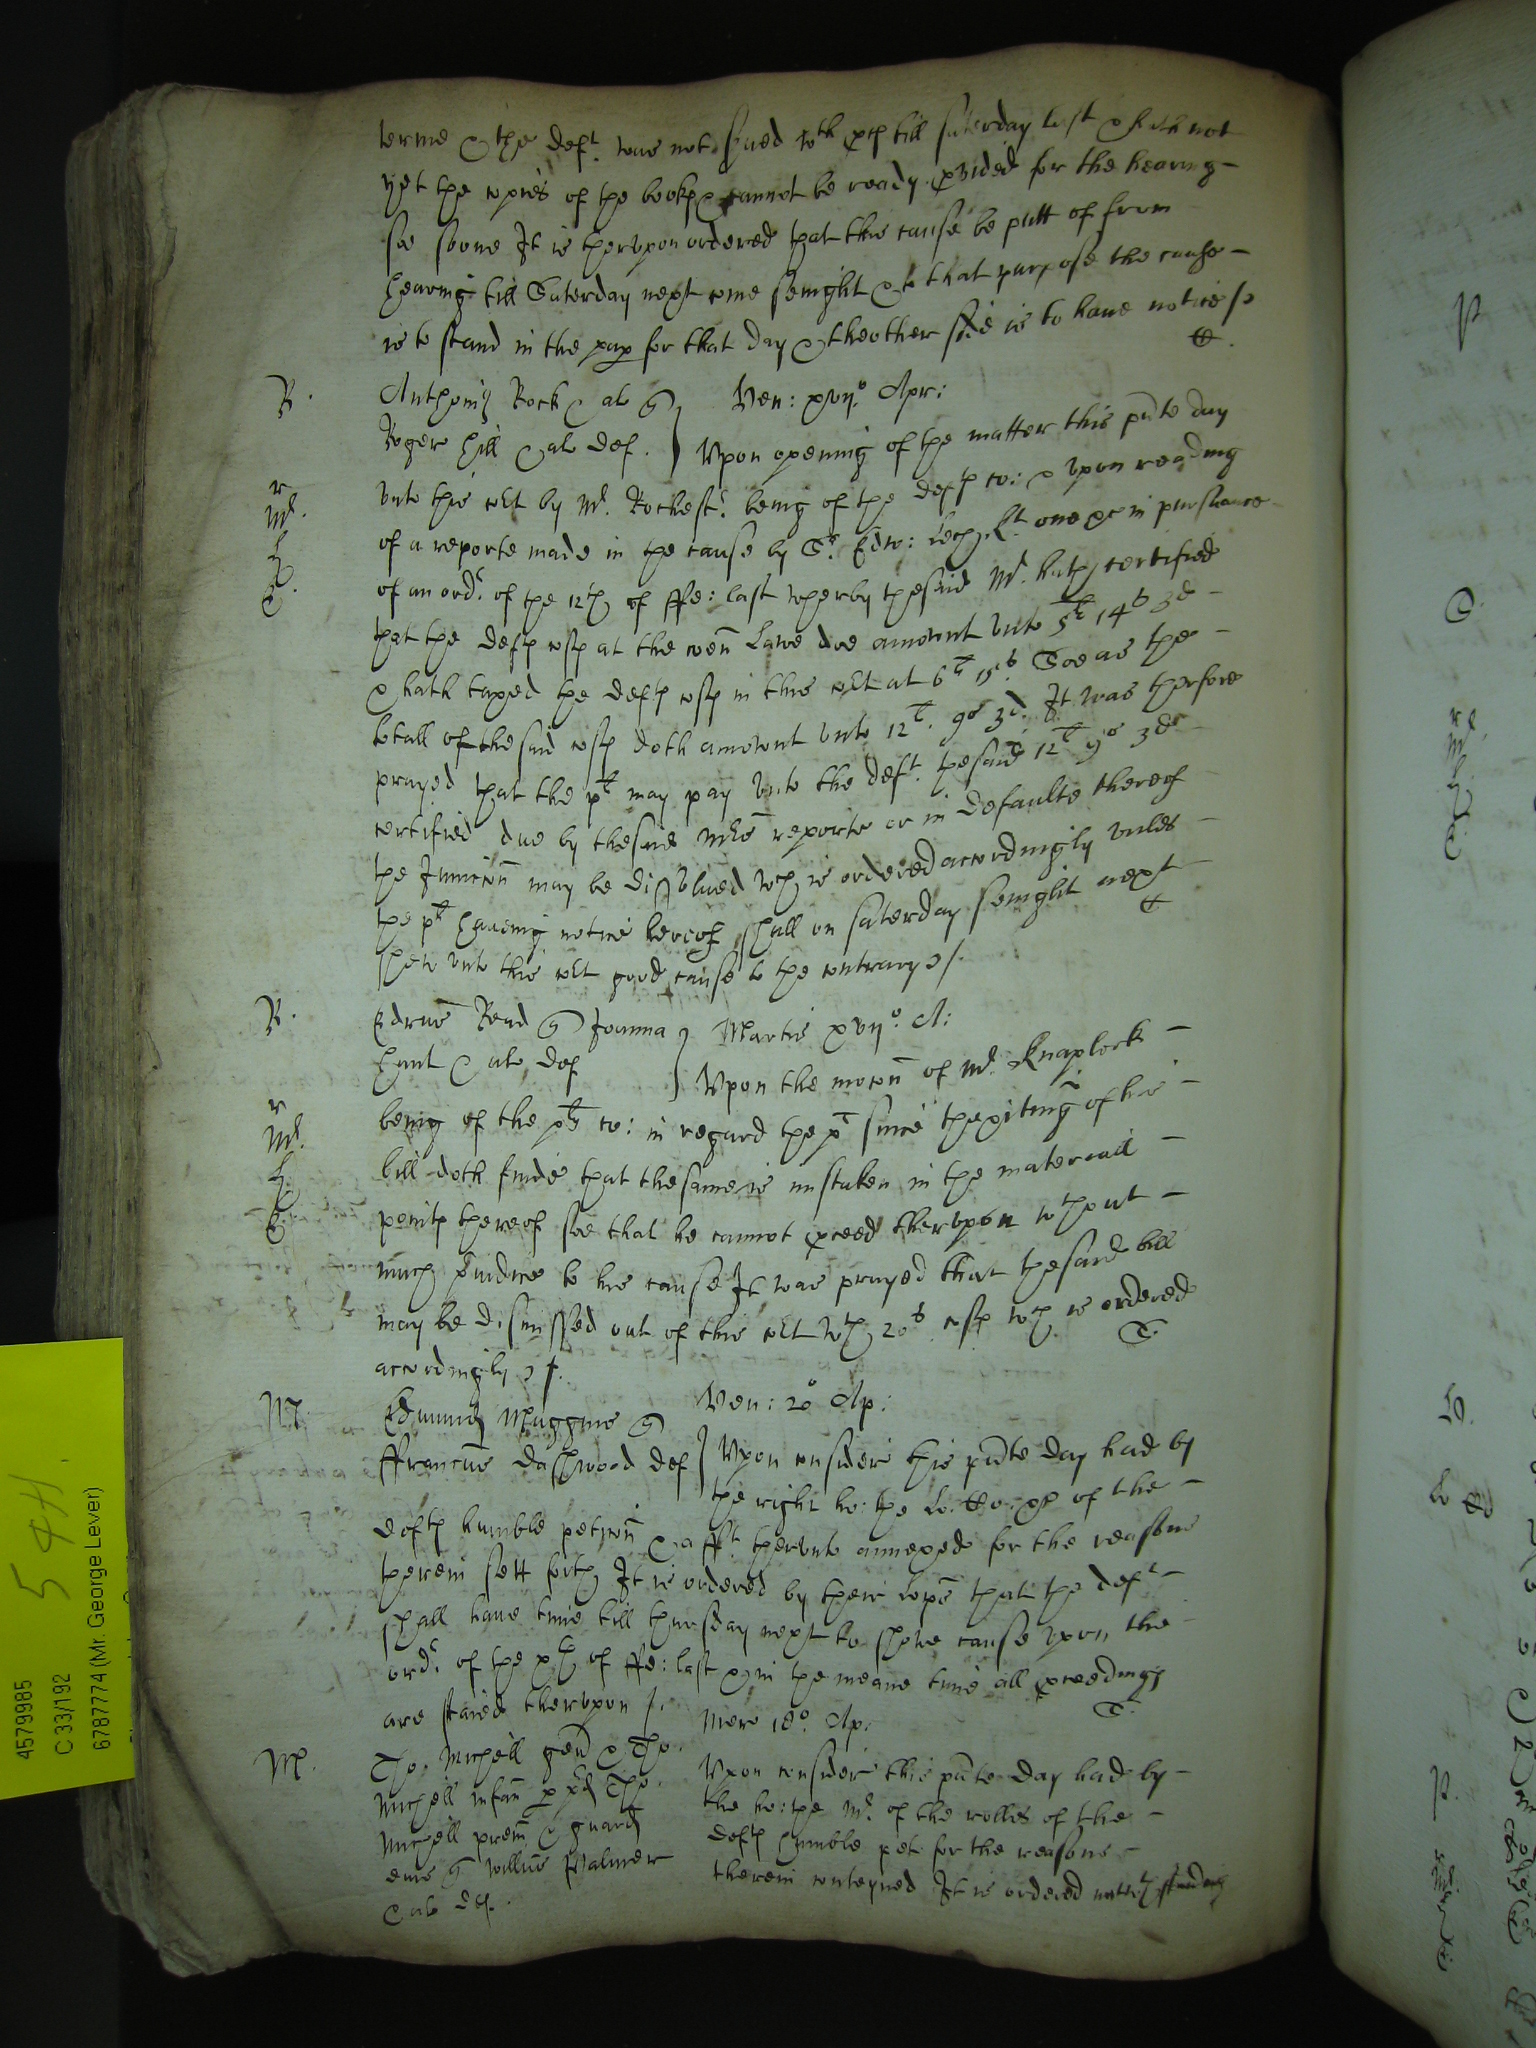 terme & the deft. was not s'ved wth till Saterday last & hath not
yet the copies of the bookes & cannot be ready pvided for the hearing
soe soone It is therupon ordered that this cause be putt of from
hearing till Saterday next come senight & to that purpose the cause
is to stand in the pap for that day & thother side is to have notice
R. Anthony Rock & al
Roger Hill & al def. Ven: xvijo. Apr:
Upon opening of the matter this pnte day
unto this cort by Mr. Rochestr. being of the defts co: & upon reading
of a reporte made in the cause by Sr. Edw: Kt. one &c in pursuance
of an ordr. of the 12th of ffe: last wherby the said Mr. hath certified
that the defts costs at the comon Lawe doe amount unto 5li 14s 3d
& hath taxed the defts costs in this cort at 6li 15s. Soe as the
totall of the said costs doth amount unto 12li. 9s 3d. It was therfore
prayed that the plt may pay unto the deft. the said 12li 9s 3d
certified due by the said Mrs reporte or in defaulte thereof
the Iniunccon may be dissolued wch is ordered accordingly unles
the plt haueing notice hereof shall on saterday senight next
shew unto this cort good cause to the contrary
R. Edrus Read Joanna
Hunt & al def Martis xvijo. A:
Upon the mocon of Mr. Knaplock
being of the plts co: in regard the plt since the of his
bill doth finde that the same is mistaken in the materiall
points thereof soe that he cannot pceed therupon wthout
much piudice to his cause It was prayed that the said bill
may be dismissed out of this cort wth 20s costs wch is ordered
accordingly
M. Edmund Muggins
ffrancus Dashwood def Ven: 20o Ap:
Upon consider this pnte day had by
the right ho: the Lo: of the
defts humble peticon & afft. therunto annexed for the reasons
therein sett forth It is ordered by their Lopps that the deft
shall haue time till thursday next to shewe cause upon the
ordr. of the xth of ffe: last & in the meane time all pceedings
are staied therupon
M. Tho. Michell gen & Tho.
Michell infan p Tho.
Michell & guard
eius Willus Palmer
& al def. Merc 18o. Ap:
Upon consider this pnte day had by
the ho: the Mr. of the rolles of the
defts humble pet for the reasons
therein conteyned It is ordered
5 4H.
4579985
C 33/192
6787774 (Mr. George Lever)